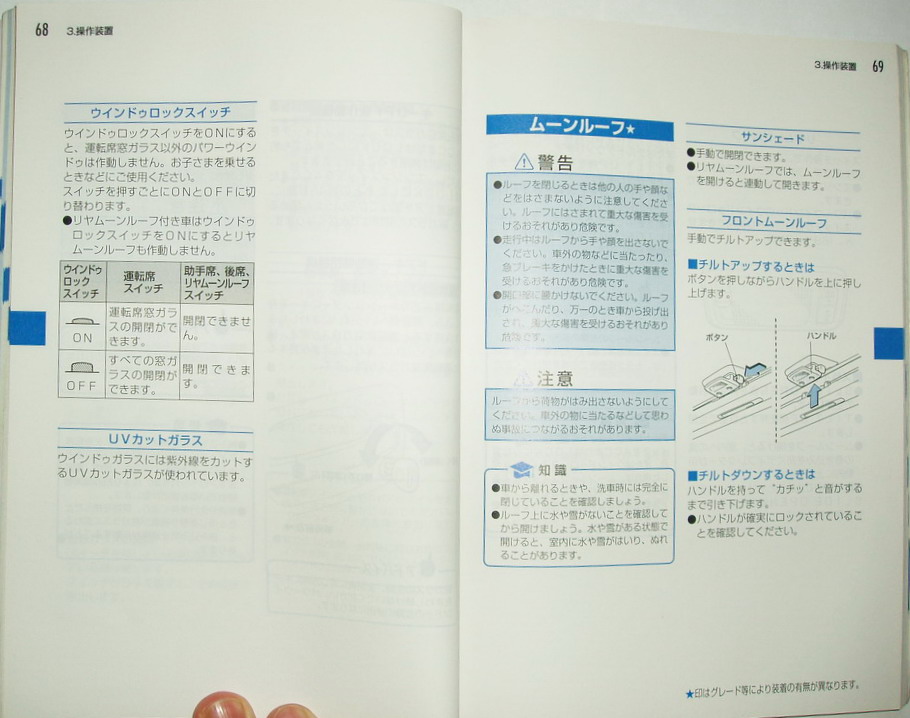 68
3.操作装置
ウインドゥロックスイッチ
ウインドゥロックスイッチをONにする
と、運転席窓ガラス以外のパワーウイン
ドゥは作動しません。お子さまを乗せる
ときなどにご使用ください。
スイッチを押すごとにONとOFFに切
り替わります。
●リヤムーンルーフ付き車はウインドゥ
ロックスイッチをONにするとリヤ
ムーンルーフも作動しません。
ウインドゥ
ロック
スイッチ
運転席
スイッチ
助手席、後席、
リヤムーンルーフ
スイッチ
ON
運転席窓ガラ
スの開閉がで
きます。
開閉できませ
ん。
OFF
すべての窓ガ
ラスの開閉が
できます。
開閉できま
す。
UVカットガラス
ウインドゥガラスには紫外線をカットす
るUVカットガラスが使われています。
3.操作装置
69
ムーンルーフ★
警告
●ルーフを閉じるときは他の人の手や顔な
どをはさまないように注意してくださ
い。ルーフにはさまれて重大な傷害を受
けるおそれがあり危険です。
●走行中はルーフから手や顔を出さないで
ください。車外の物などに当たったり、
急ブレーキをかけたときに重大な傷害を
受けるおそれがあり危険です。
●開口部に腰かけないでください。ルーフ
がへこんだり、万一のとき車から投げ出
され、重大な傷害を受けるおそれがあり
危険です。
注意
ルーフから荷物がはみ出さないようにして
ください。車外の物に当たるなどして思わ
ぬ事故につながるおそれがあります。
知識
●車から離れるときや、洗車時には完全に
閉じていることを確認しましょう。
●ルーフ上に水や雪がないことを確認して
から開けましょう。水や雪がある状態で
開けると、室内に水や雪がはいり、ぬれ
ることがあります。
サンシェード
●手動で開閉できます。
●リヤムーンルーフでは、ムーンルーフ
を開けると連動して開きます。
フロントムーンルーフ
手動でチルトアップできます。
■チルトアップするときは
ボタンを押しながらハンドルを上に押し
上げます。
ボタン
ハンドル
■チルトダウンするときは
ハンドルを持って“カチッ”と音がする
まで引き下げます。
●ハンドルが確実にロックされているこ
とを確認してください。
★印はグレード等により装着の有無が異なります。